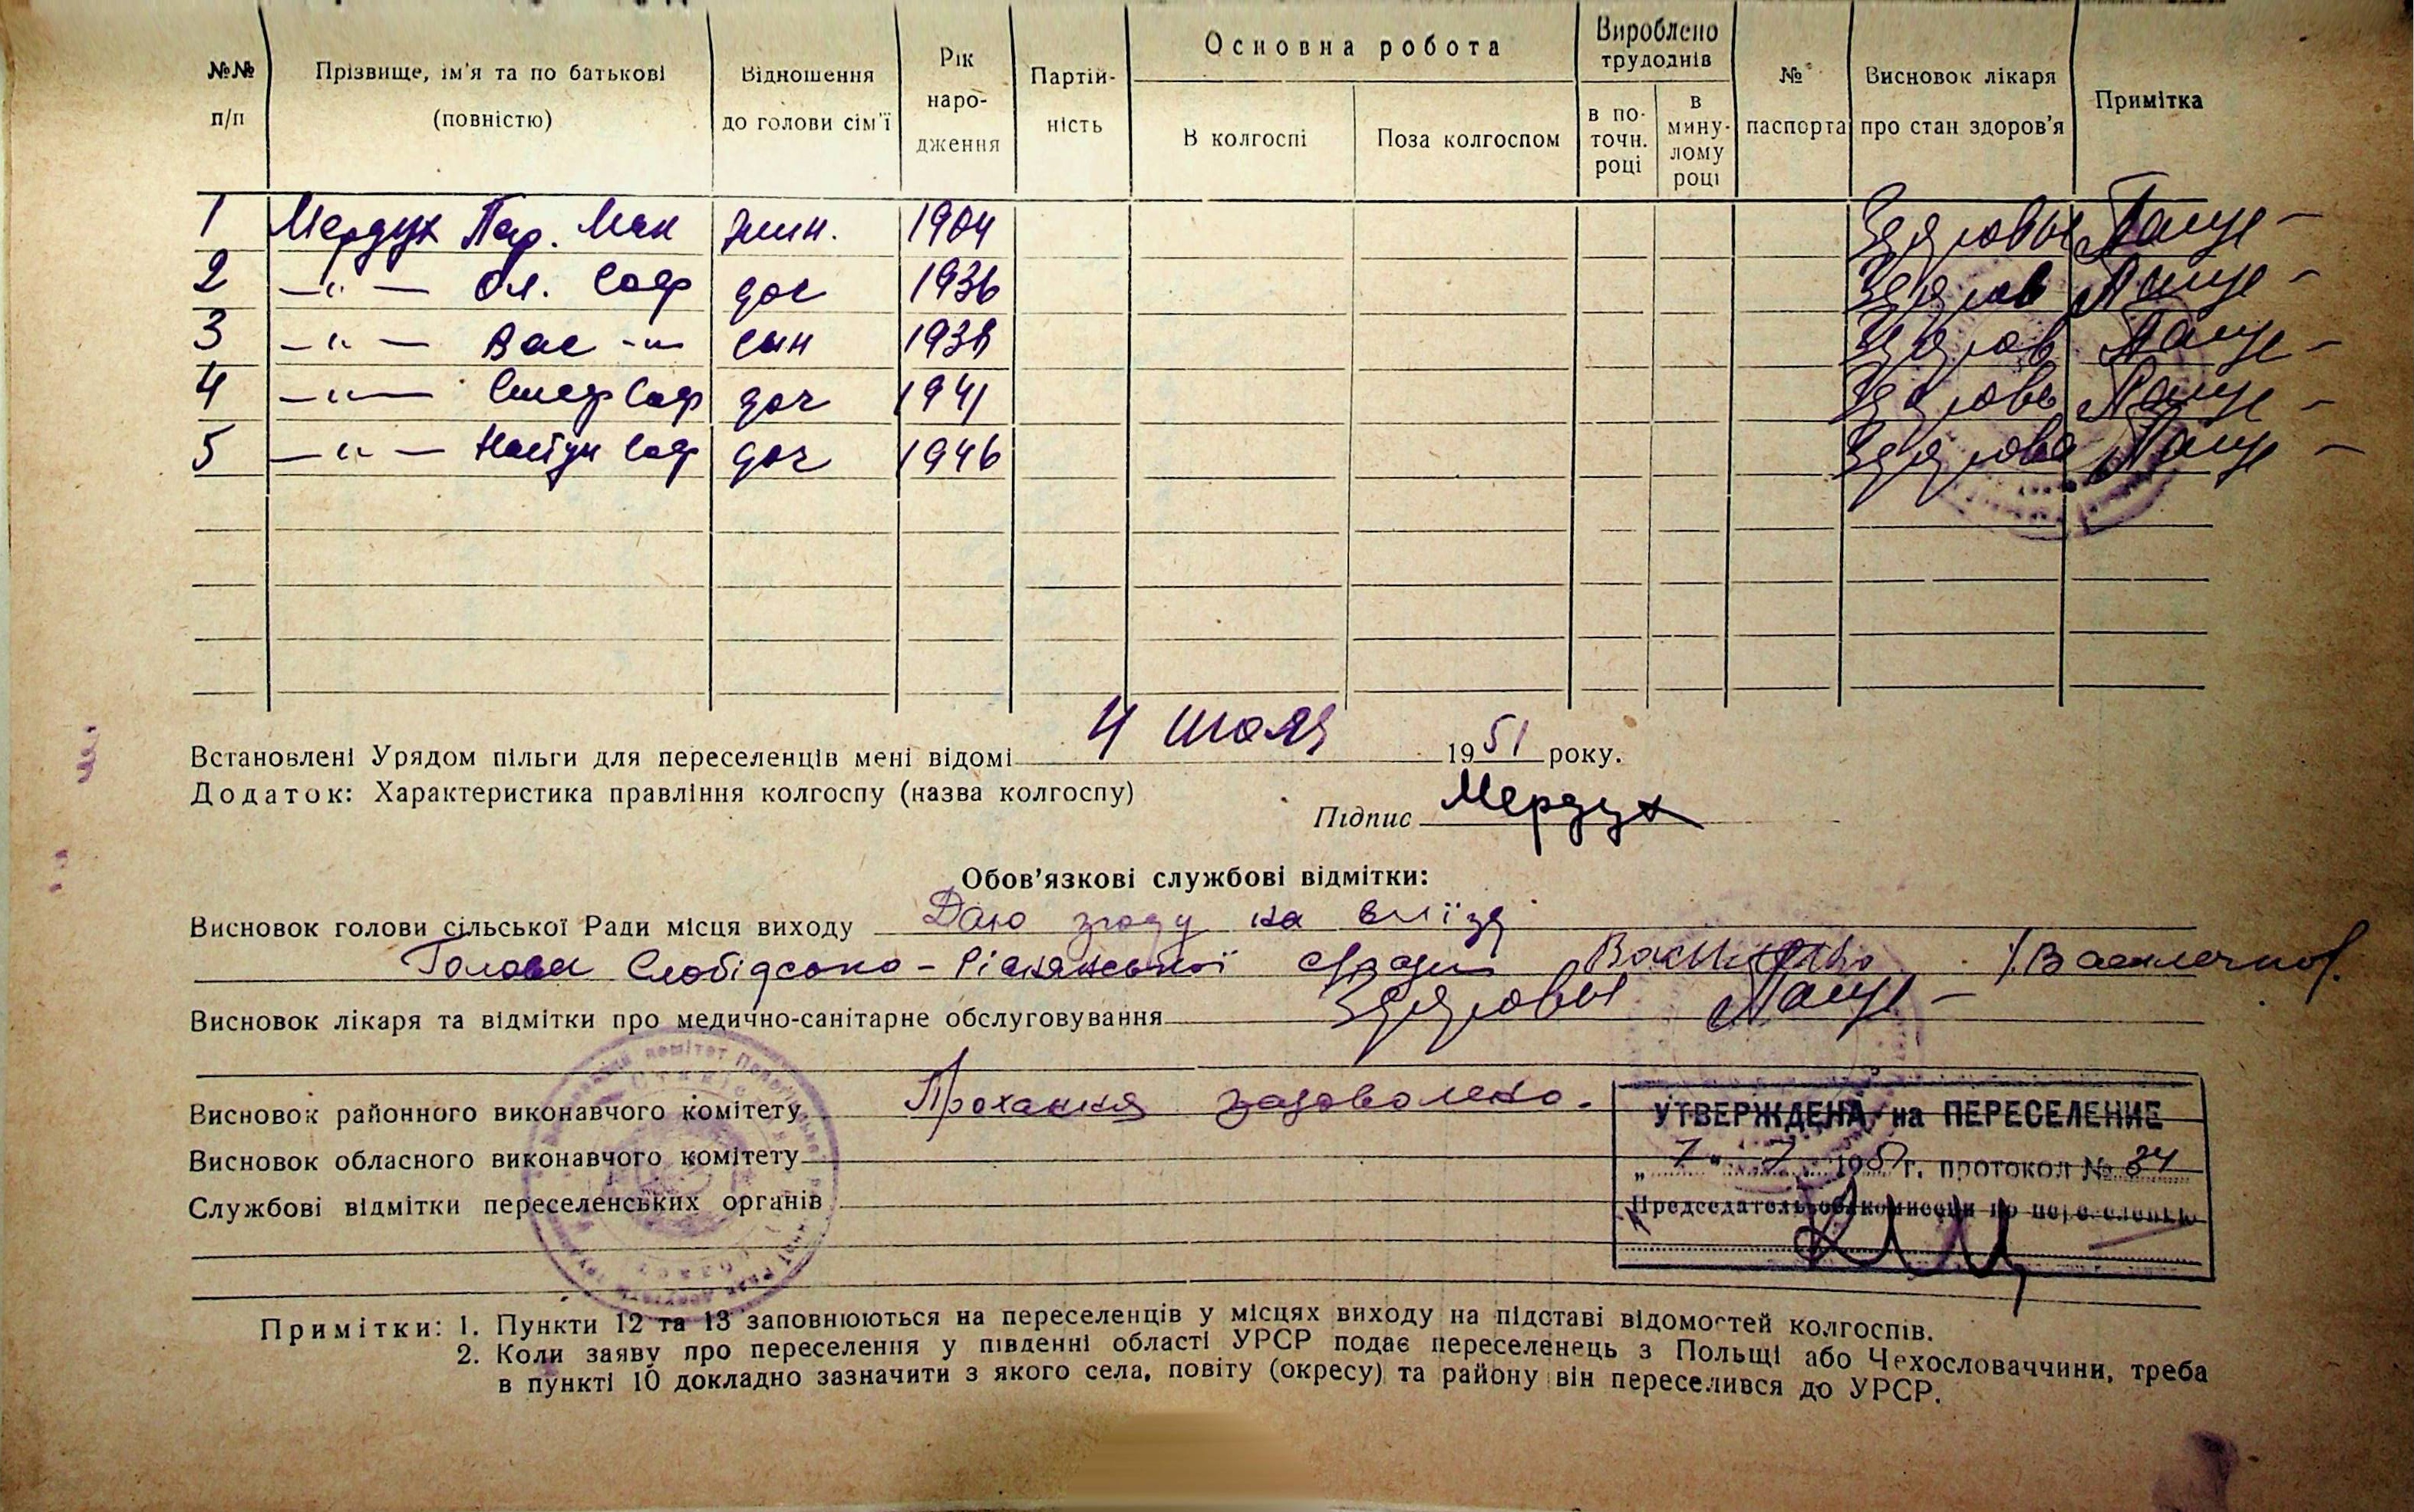 №№ п/п | Прізвище, ім'я та по батькові (повністю) | Відношення до голови сім'ї | Рік народження | Партійність | Основна робота | В колгоспі | Поза колгоспом | Вироблено трудоднів | в поточн. році | в минулому році | № паспорта | Висновок лікаря про стан здоров'я | Примітка
1 Мердух Пар. Мак 1904 Здоровы
2 –"– Ол. Соф доч 1936 Здоров
3 –"– Вас –"– сын 1938 Здоров
4 –"– Стеф Соф доч 1941 Здорова
5 –"– Настун Соф доч 1946 Здорова
Встановлені Урядом пільги для переселенців мені відомі 4 июля 1951 року.
Додаток: Характеристика правління колгоспу (назва колгоспу)
Підпис Мердух
Обов'язкові службові відмітки:
Висновок голови сільської Ради місця виходу Даю згоду на виїзд
Голова Слобідсько-
Висновок лікаря та відмітки про медично-санітарне обслуговування Здоровы
Висновок районного виконавчого комітету Прохання задоволено.
Висновок обласного виконавчого комітету
Службові відмітки переселенських органів
УТВЕРЖДЕНА на ПЕРЕСЕЛЕНИЕ
„7" 7 1951г. протокол № 84
Председатель облкомиссии по переселению
Примітки: 1. Пункти 12 та 13 заповнюються на переселенців у місцях виходу на підставі відомостей колгоспів.
2. Коли заяву про переселення у південні області УРСР подає переселенець з Польщі або Чехословаччини, треба
в пункті 10 докладно зазначити з якого села, повіту (окресу) та району він переселився до УРСР.